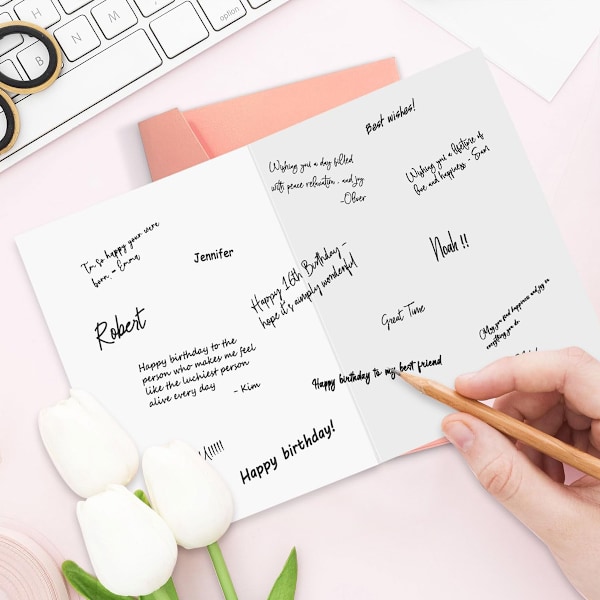 I'm so happy your were
born. - Emma
Jennifer
Robert
Happy birthday to the
person who makes me feel
like the luchiest person
alive every day
- Kim
Happy birthday!
Best wishes!
Wishing you a day filled
with peace relaxation, and joy
-Oliver
Wishing you a lifetime of
love and happiness - Evan
Noah !!
Happy 16th Birthday -
hope it's simply wonderful
Great Time
May you find happiness and joy in
everything you do
Happy birthday to my best friend
option